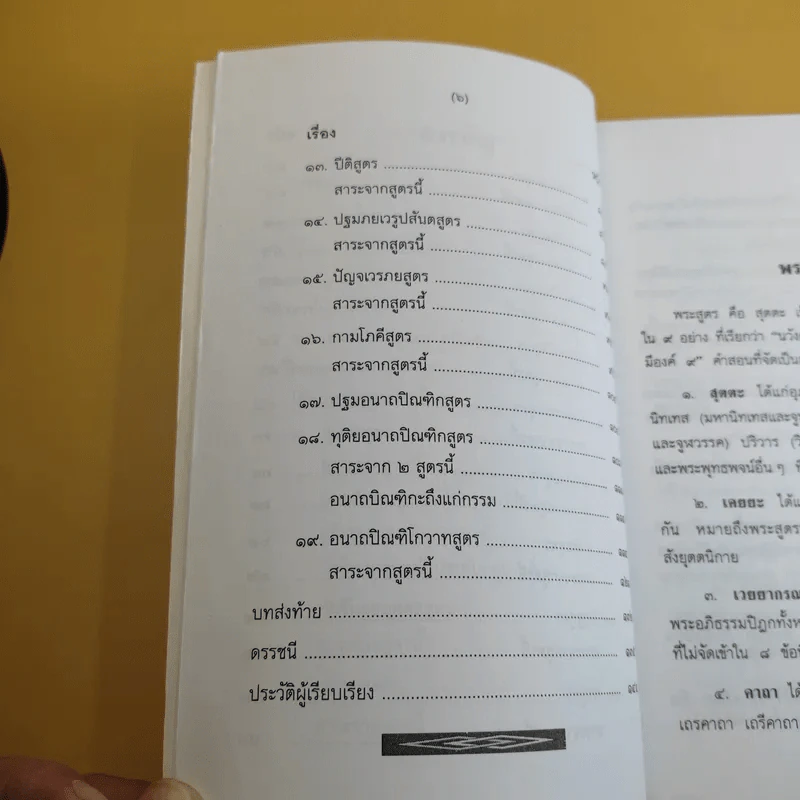 (๖)
เรื่อง
๑๓. ปีติสูตร
สาระจากสูตรนี้
๑๔. ปฐมภยเวรูปสันตสูตร
สาระจากสูตรนี้
๑๕. ปัญจเวรภยสูตร
สาระจากสูตรนี้
๑๖. กามโภคีสูตร
สาระจากสูตรนี้
๑๗. ปฐมอนาถปิณฑิกสูตร
๑๘. ทุติยอนาถปิณฑิกสูตร
สาระจาก ๒ สูตรนี้
อนาถบิณฑิกะถึงแก่กรรม
๑๙. อนาถปิณฑิโกวาทสูตร
สาระจากสูตรนี้
บทส่งท้าย
ดรรชนี
ประวัติผู้เรียบเรียง
พระสูตร คือ สุตตะ
ใน ๙ อย่าง ที่เรียกว่า "นวัง
มีองค์ ๙" คำสอนที่จัดเป็น
๑. สุตตะ ได้แก่
นิทเทส (มหานิทเทสและจู
และจูฬวรรค) ปริวาร
และพระพุทธพจน์อื่น ๆ
๒. เคยยะ ได้
กัน หมายถึงพระสูตร
สังยุตตนิกาย
๓. เวยยากรณ
พระอภิธรรมปิฎกทั้ง
ที่ไม่จัดเข้าใน ๘ ข้อ
๔. คาถา ได้
เถรคาถา เถรีคาถา